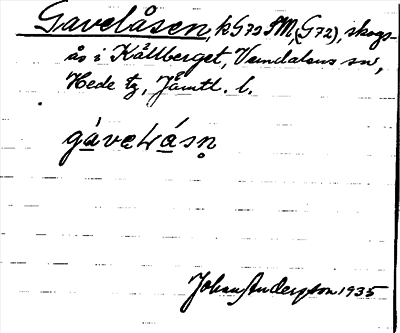 Gavelåsen, k G73 SM (G72), skogs-
ås i Kållberget, Vemdalens sn,
Hede tg, Jämtl. l.
gávelásn
Johan Anderson 1935